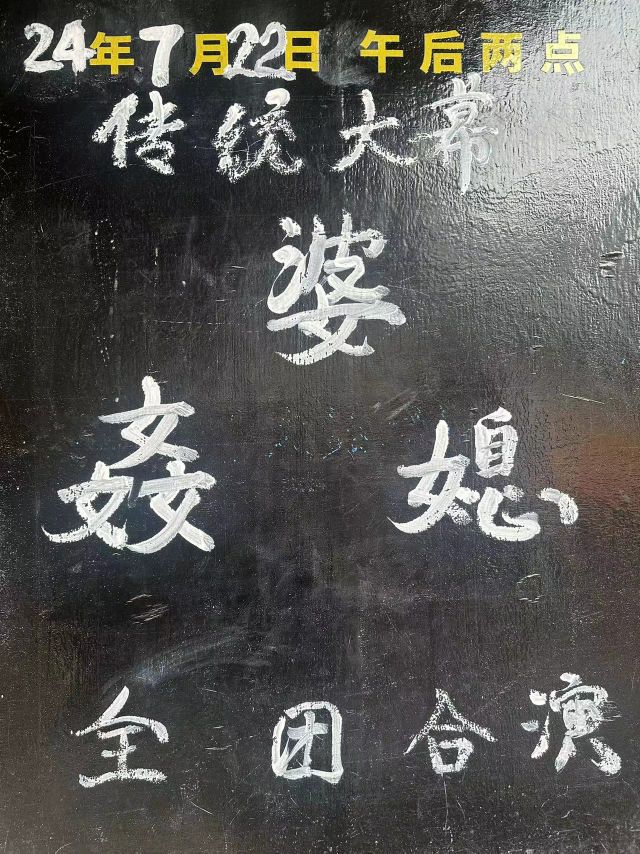 24年7月22日 午后两点
传统大常
婆
姦 媳
全团合演